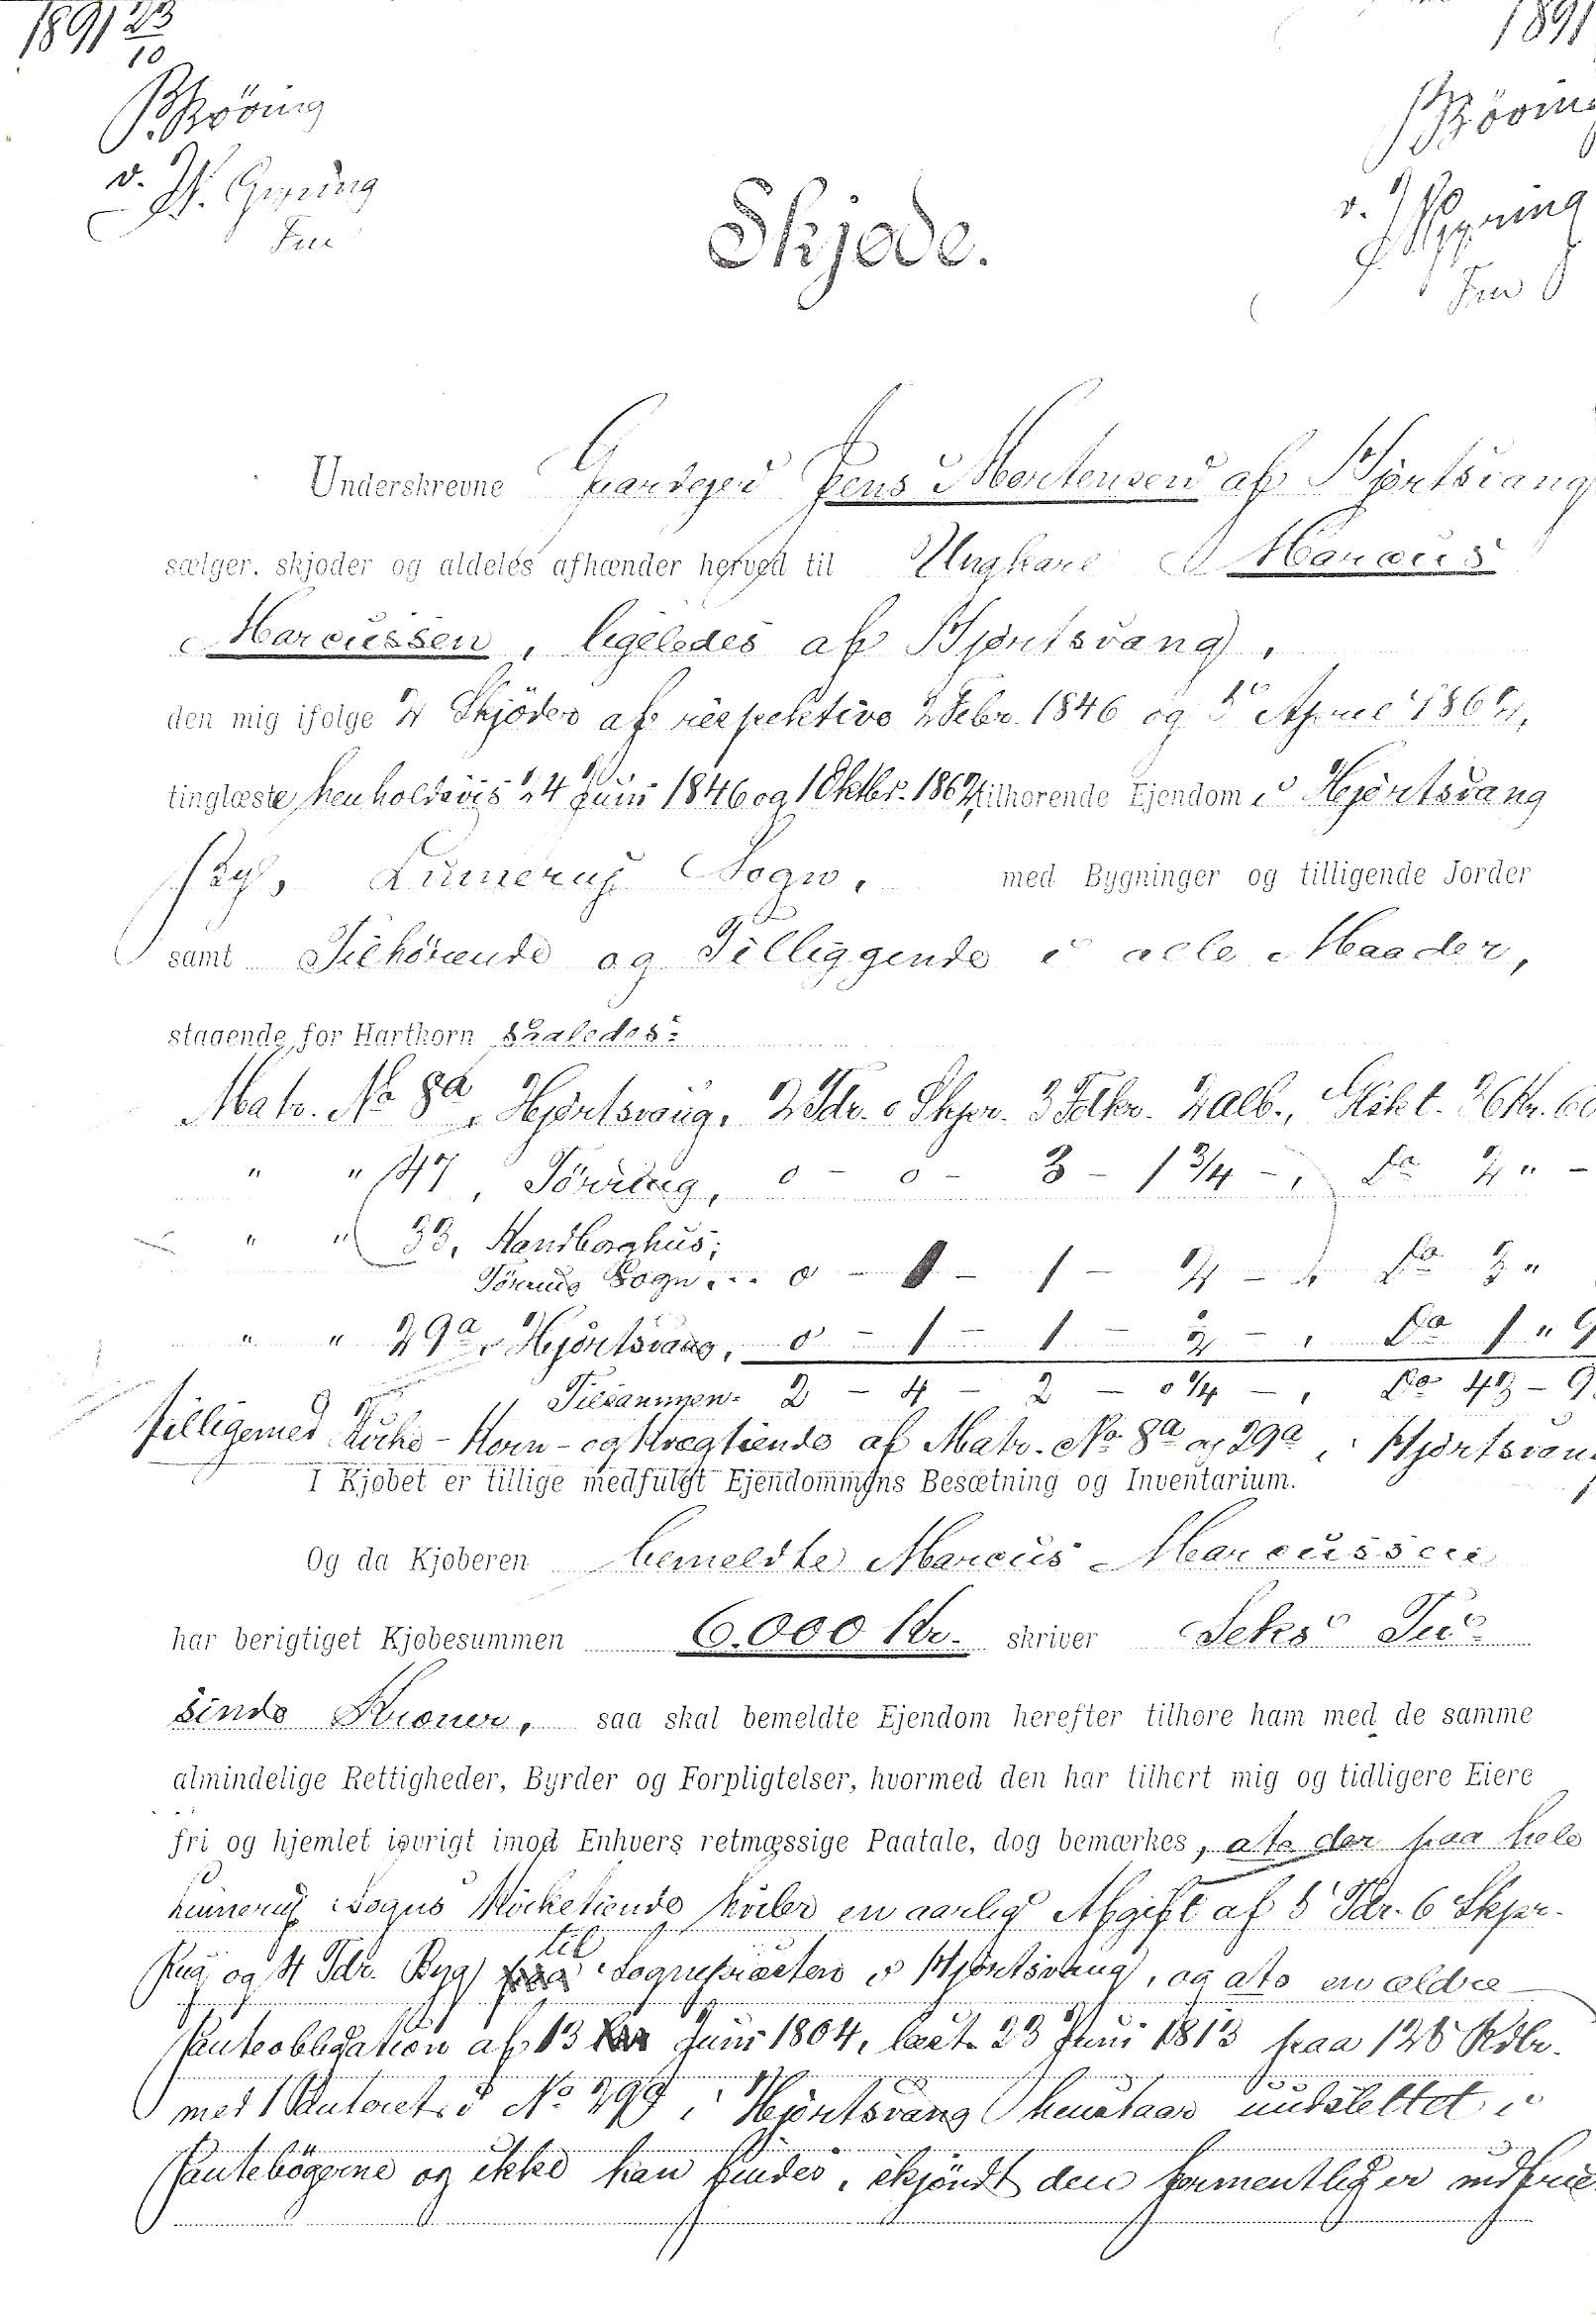 1891 23/10
1891
Skjøde.
Underskrevne Gaardejer Jens Mortensen af Hjortsvang
sælger, skjøder og aldeles afhænder herved til Ungkarl Marcus
Marcussen, ligeledes af Hjortsvang,
den mig ifølge 2 Skjøder af respektive 2 Febr. 1846 og April 1862,
tinglæste henholdsvis 24 Juni 1846 og 1 Oktbr. 1862, tilhørende Ejendom i Hjortsvang
By, Linnerup Sogn, med Bygninger og tilligende Jorder
samt Tilhørende og Tilliggende i alle Maader,
staaende for Hartkorn saaledes:
Matr. No 8a, Hjortsvang, 2 Tdr. 0 Skpr. 3 Fdkr. 2 Alb., Glskt. 36 Kr. 60
" " 47, Tørring, 0 - 0 - 3 - 1 3/4 - , Do 2 " -
" " 33, Sandborghus,
Tørring Sogn, .. 0 - 1 - 1 - 2 - , Do 3 "
" " 29a, Hjortsvang, 0 - 1 - 1 - 2 - , Do 1 " 9
Tilsammen: 2 - 4 - 2 - 0 1/4 - , Do 43 - 9
tilligemed Kirke-Korn- og Kvægtiende af Matr. No 8a og 29a i Hjortsvan
I Kjøbet er tillige medfulgt Ejendommens Besætning og Inventarium.
Og da Kjøberen bemeldte Marcus Marcussen
har berigtiget Kjøbesummen 6.000 Kr. skriver Seks Tu-
sinde Kroner, saa skal bemeldte Ejendom herefter tilhøre ham med de samme
almindelige Rettigheder, Byrder og Forpligtelser, hvormed den har tilhørt mig og tidligere Eiere
fri og hjemlet iøvrigt imod Enhvers retmæssige Paatale, dog bemærkes, at der paa hele
Linnerup Sogns Kirketiende hviler en aarlig Afgift af 5 Tdr. 6 Skpr.
Rug og 4 Tdr. Byg til Sognepræsten i Hjortsvang, og at en ældre
Panteobligation af 13 Juni 1804, læst 23 Juni 1813 paa 125 Rdlr.
med 1 Panteret i No 29a i Hjortsvang henstaar uudslettet i
Pantebøgerne og ikke kan findes, skjøndt den formentlig er indfrie